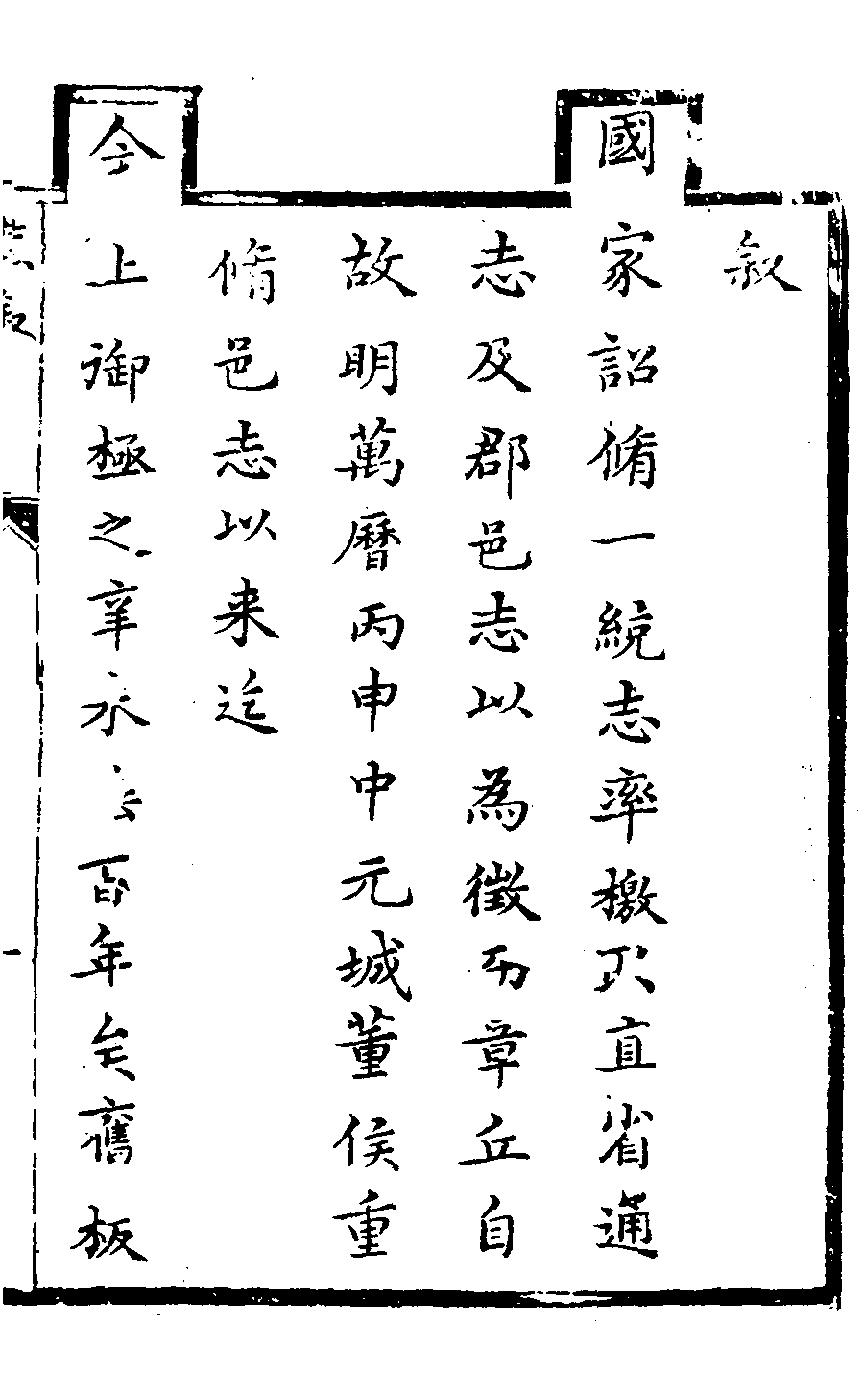 叙
國家詔脩一統志率檄取直省通
志及郡邑志以為徵而章丘自
故明萬曆丙申中元城董侯重
脩邑志以来迄
今上御極之辛未百年矣舊板